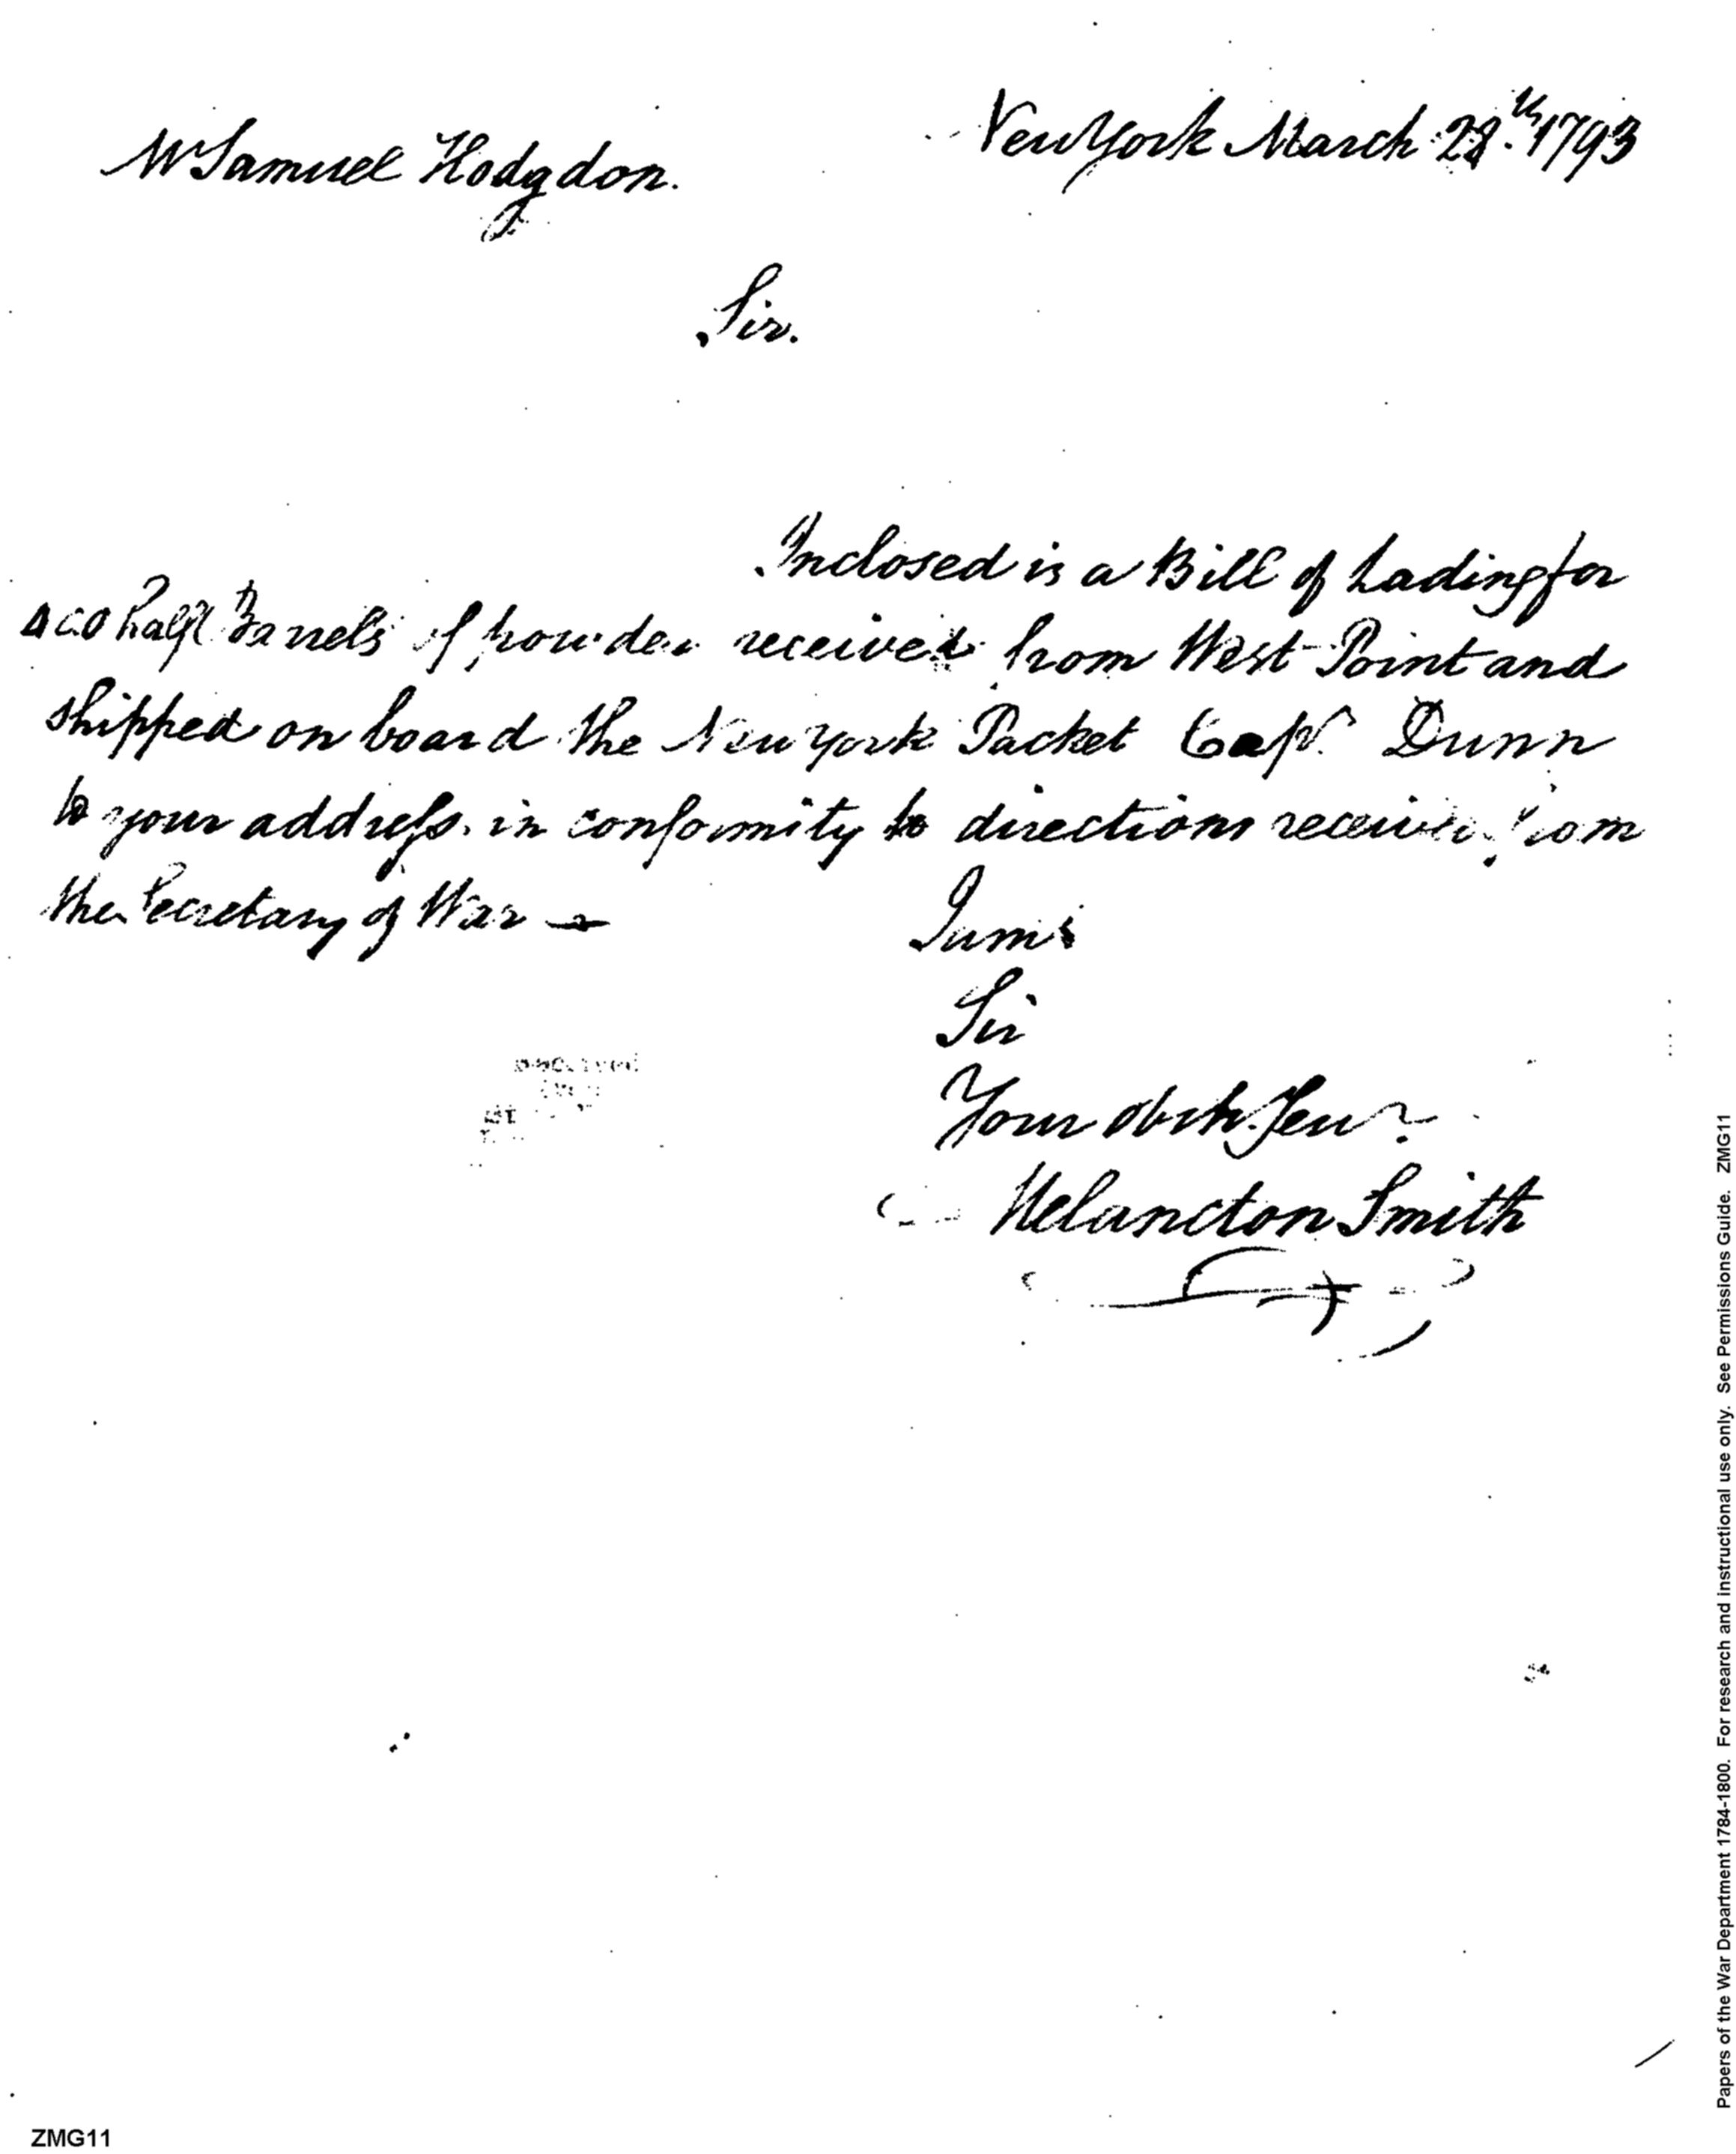 New York March 28.th 1793
Mr Samuel Hodgdon.
Sir.
Inclosed is a Bill of Lading for
half Barrels of powder received from West-Point and
shipped on board the New York Packet Capt. Dunn
to your address, in conformity to directions received from
the Secretary of War —
I am
Sir
Your Obdt. Servt
Melancton Smith
Papers of the War Department 1784-1800. For research and instructional use only. See Permissions Guide. ZMG11
ZMG11